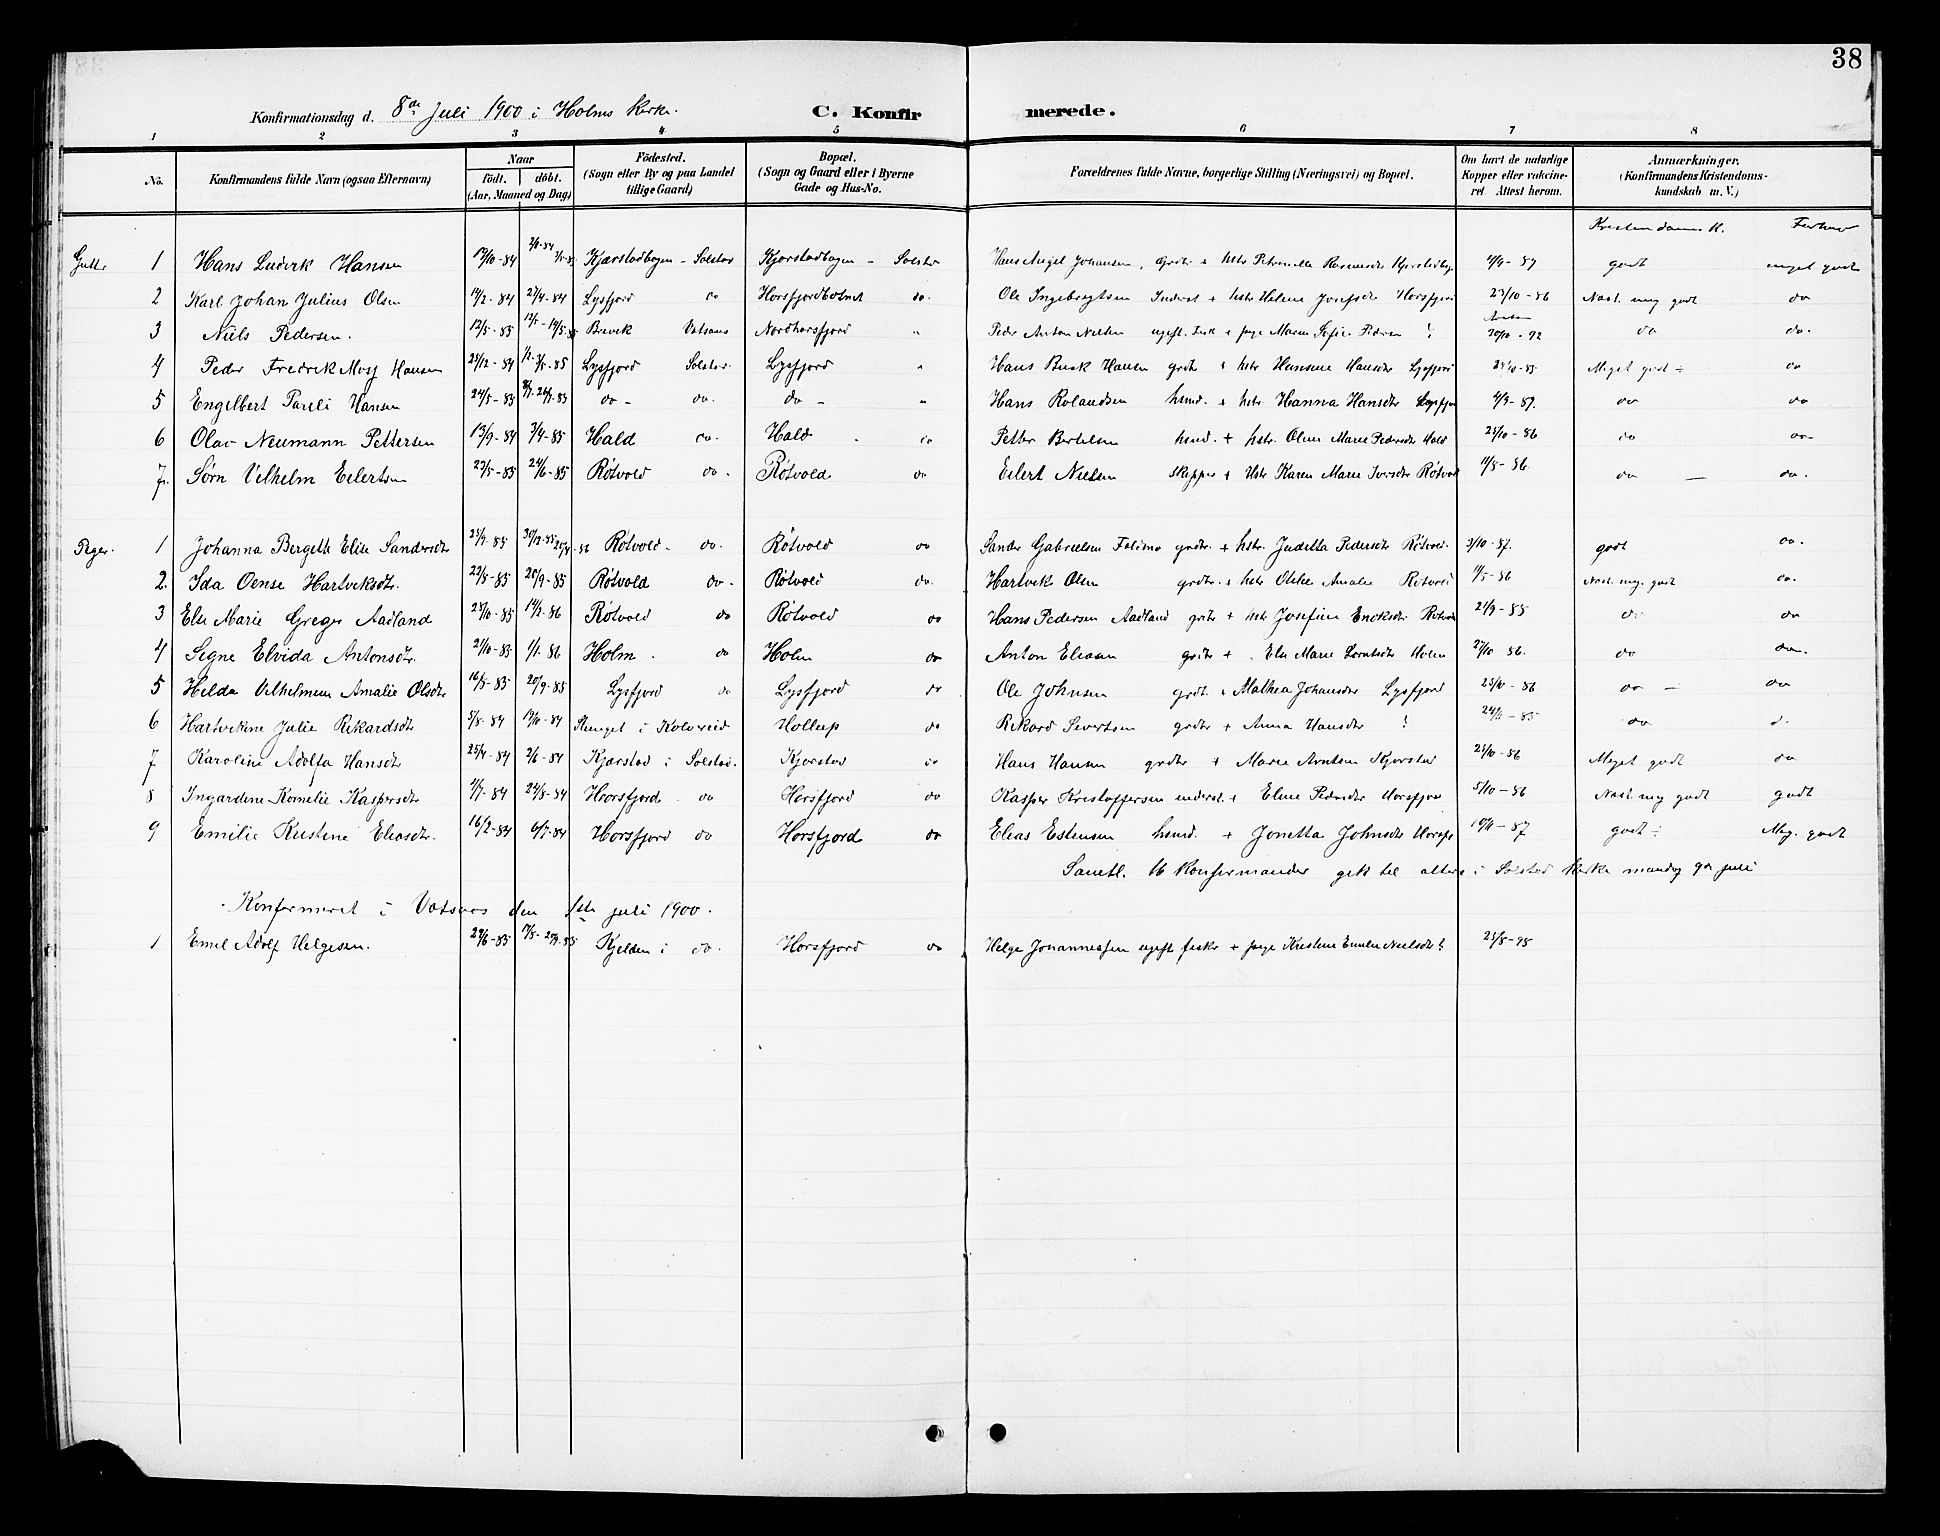 38
Konfirmationsdag d. 8de Juli 1900 i Holms Kirke.
C. Konfirmerede.
1 2 3 4 5 6 7 8
No.
Konfirmandens fulde Navn (ogsaa Efternavn)
Naar födt. döbt. (Aar, Maaned og Dag)
Födested. (Sogn eller By og paa Landet tillige Gaard)
Bopæl. (Sogn og Gaard eller i Byerne Gade og Hus-No.
Forældrenes fulde Navne, borgerlige Stilling (Næringsvei) og Bopæl.
Om havt de naturlige Kopper eller vaccineret Attest herom.
Anmærkninger. (Konfirmandens Kristendomskundskab m. V.)
Kristendoms K.
Gutter 1 Hans Ludvik Hansen 84 Kjærstadbogen - Solstad Kjærstadbogen - Solstad Hans Angel Johansen, grdbr + hstr Petronella Rasmusdtr - 87 godt meget godt
2 Karl Johan Julius Olsen 14/2-84 27/4-84 Lysfjord do Horsfjordbotnet do. Ole Ingebrigtsen Inderst + hstr Helene Josefsdtr Horsfjord 23/10-86 Nast. meg godt do
3 Niels Pedersen. 12/5-85 Brevik Vatsaas Nordhorsfjord " Peder Anton Nielsen ugift. + pige Maren Sofie ? 20/10-92 do do.
4 Peder Fredrik Moy Hansen 25/12-84 Lysfjord Solstad. Lysfjord " Hans Busk Hansen grdbr + hstr Hansine Hansdtr Lysfjord Meget godt ÷ do
5 Engelbert Pareli Hansen 24/5-85 do - do. do - " Hans Rolandsen hsmd. + hstr Hanna Hansdtr Lysfjor 4/9-87. do do
6 Olav Neumann Pettersen 13/9-84 3/4-85 Hald do. Hald do Petter Bertelsen hsmd. + hstr. Oline Marie Pedersdtr Hald 25/10-86 do do
7. Sørn Vilhelm Eilertsen 23/5-85 24/6-85 Røtvold do. Røtvold do Eilert Nielsen skipper + hstr Karen Marie Iversdtr Røtvol 11/5-86. do - do.
Piger. 1 Johanna Bergette Elise Sandersdtr 25/9-85 Røtvold. do. Røtvold do Sander Gabrielsen grdbr. + hstr. Juditta Pedersdtr Røtvold. 3/10-87. godt do.
2. Ida Oense Hartviksdtr. 22/5-85 20/9-85 Røtvold do. Røtvold do. Hartvik Olsen grdbr. + hstr Amalie Røtvold 11/5-86 Nast. meg. godt do.
3 Else Marie Greger Aadland 28/10-85 14/2-86 Røtvold do Røtvold do Hans Pedersen Aadland grdbr + hstr Josefine Eriksdtr Røtvol do do
4 Signe Elvida Antonsdtr. 21/10-85 1/1-86 Holm. do Holm do Anton Eliasen grdbr + Else Marie Lorntsdtr Holm 27/10-86. do do.
5 Hilda Vilhelmine Amalie Olsdtr 16/5-85 20/9-85 Lysfjord do Lysfjord do Ole Johnsen grdbr. + Mathea Johansdtr Lysfjord 25/10-86 do - do
6 Hartvikine Julie Rikardsdtr 5/8-84 84 i Kolvereid Hollup do Rikard Sivertsen grdbr + Anna Hansdtr ? 24/11-85 do
7 Karoline Adolfa Hansdtr 25/4-84 2/6-84 Kjærstad i Solstad. Kjærstad do Hans Hansen grdbr + Maria Arntsen Kjærstad 25/10-86 Meget godt do
8 Ingardine Kornelie Kaspersdtr 84 24/8-84 Horsfjord do Horsfjord do Kasper Kristoffersen inderst. + Eline Pedersdtr Horsfjor 5/10-86 Nast. meg godt godt
9 Emilie Kristine Eliasdtr. 16/2-84 6/7-84 Horsfjord do Horsfjord do Elias Estensen hsmd. + Jonetta Johnsdtr Horsfj 10/11-87 godt ÷ Meg. godt
Samtl. 16 Konfirmander gik til alters i Solstad Kirke mandag 9de juli
Konfirmeret i Vatsaas den 1ste juli 1900.
1 Emil Adolf Helgesen. 85 Kjelden i do. Horsfjord do Helge Johannessen ugift fisker + pige Kristine Emilie Nielsdtr? 25/8-98